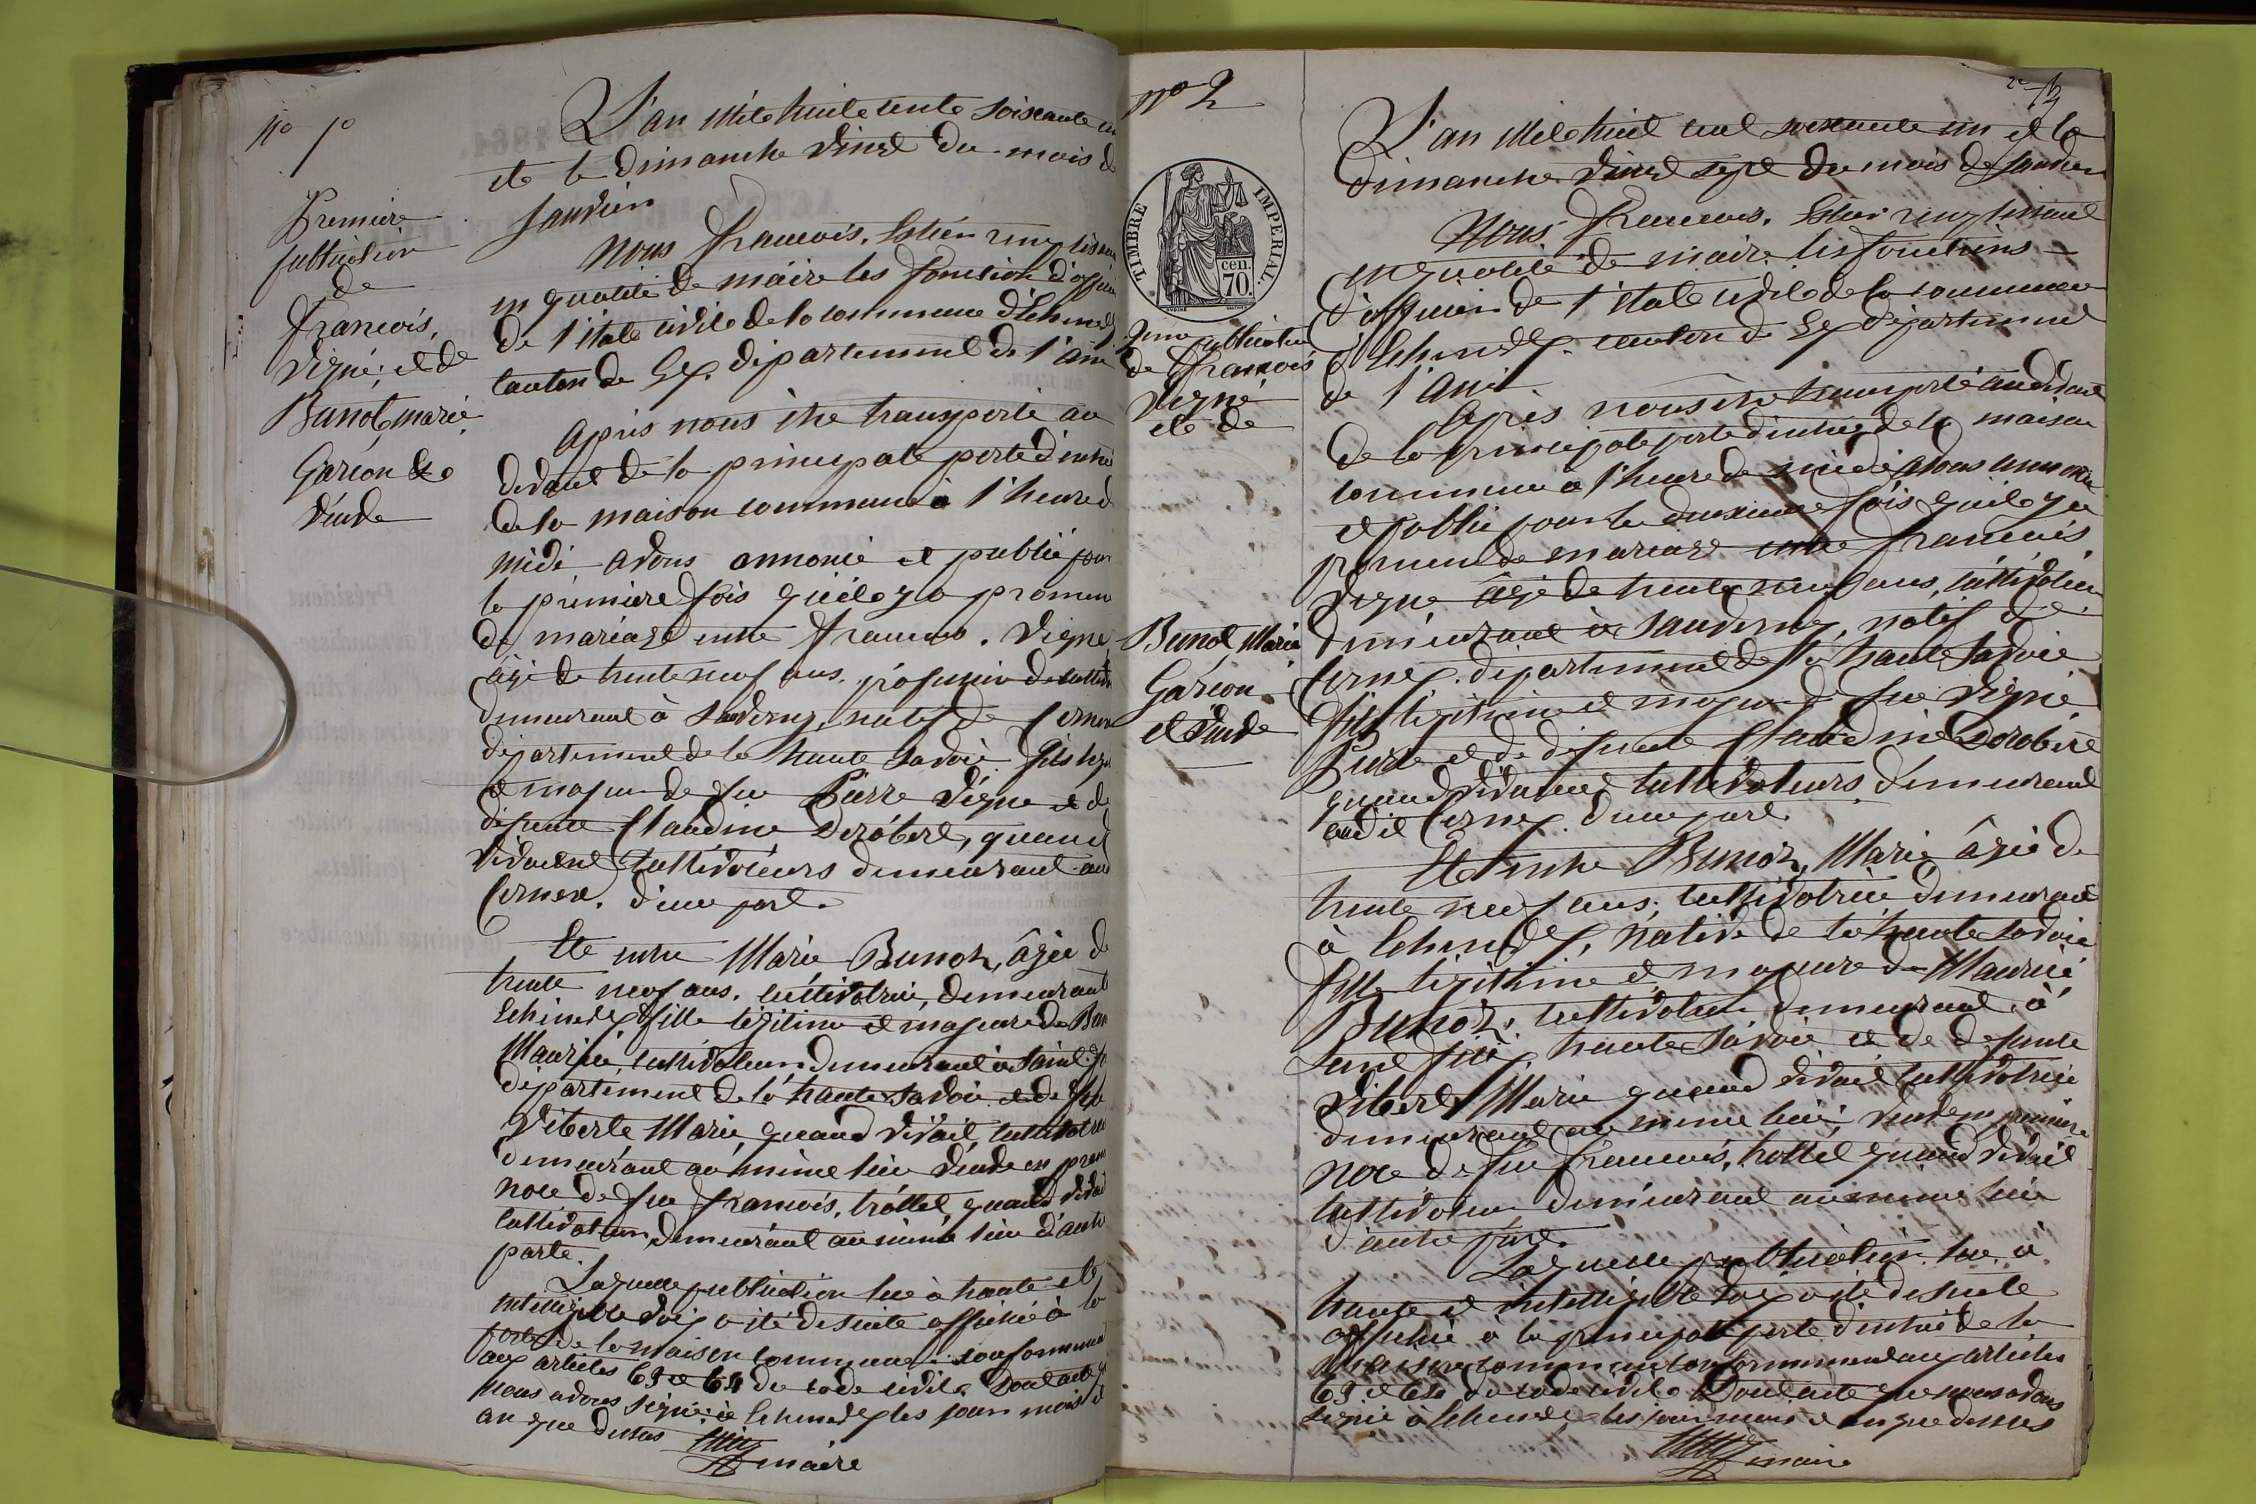 no 1o
Premiere
publication
de
François,
Vigné, et de
Bunot, marie
Garcon &o
Veuve
L'an Mile huite cente soixante un
ete le dimanche Vingt du mois de
Janvier
Nous François, Estier remplissan
en qualité de maire les fonction d'officie
de l'état civile de la commune d'Echenevex
canton de Gex, département de l'ain
Après nous être transporté au
devant de la principale porte d'entrée
de la maison commune à l'heure d
midi avons annoncé et publié pour
la première fois qu'ile y a promesse
de mariage entre François, Vigne,
âgé de trente neuf ans, profession de cultiv
demeurant à Sauverny, natif de Cernex
département de la haute Savoie fils leg
et majeur de feu Pierre Vigne et de
défunte Claudine Derobert, quand
vivaient cultivateurs demeurant au
Cernex, d'une part.
Ete entre Marie Bunoz, âgée de
trente neuf ans, cultivatrice, demeurant
Echenevex fille légitime et majeure de Bun
Mauricé, cultivateur demeurant à Saint
département de la haute Savoie et de
Viberte Marie, quand vivait, cultivatrice
demeurant au même lieu Veuve en prem
noce de feu François, trottet, quand vivai
cultivateur demeurant au même lieu d'autre
parte.
Laquelle publication lue à haute ete
intelligible voix a été de suite affichée à la
porte de la maison commune conformement
aux articles 63 et 64 du code civile dont acte
nous avons signé à Echenevex les jour mois et
an que dessus
maire
no 2
TIMBRE IMPERIAL.
cen.
70.
2me publication
de François
Vigné
ete de
Bunot, Marie
Garcon
et Veuve
L'an Mile huit cent soixante un et le
Dimanche Vingt sept du mois de Janvier
Nous François, Estier remplissant
en qualité de maire les fonctions
d'officier de l'état civile de la commune
d'Echenevex canton de Gex département
de l'ain
Après nous être transporté au devant
de la principale porte d'entrée de la maison
commune à l'heure de midi avons annoncé
et publié pour la deuxieme fois qu'ile y a
promesse de mariage entre François
Vigne âgé de trente neuf ans, cultivateur
demeurant à Sauverny, natif de
Cernex, département de la haute Savoie
fils légitime et majeur de feu Vigné
Pierre et de défunte Claudine Derobert
quand vivaient cultivateurs demeurant
audit Cernex d'une part.
Et entre Bunoz, Marie âgée de
trente neuf ans, cultivatrice demeurant
à Echenevex, native de la haute Savoie
fille légitime et majeure de Mauricé
Bunoz, cultivateur demeurant à
haute Savoie et de défunte
Vibert Marie quand vivait cultivatrice
demeurant au même lieu, veuve en première
noce de feu François, trottet quand vivait
cultivateur demeurant au même lieu
d'autre part.
Laquelle publication lue à
haute et intelligible voix a été de suite
affichée à la principale porte d'entrée de la
maison commune conformement aux articles
63 et 64 du code civile Dont acte que nous avons
signé à Echenevex les jour mois et an que dessus
maire